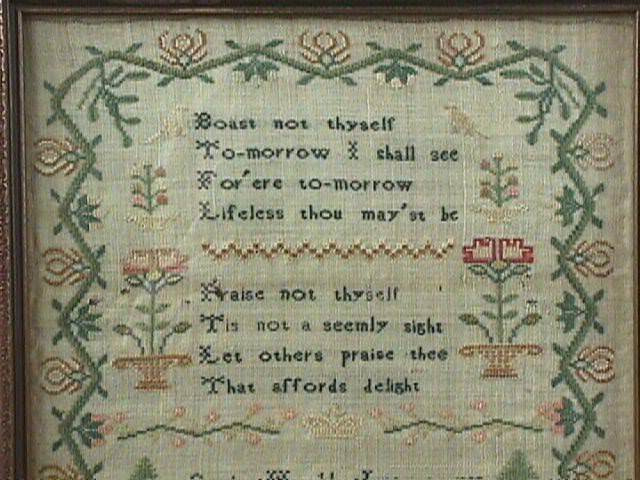 Boast not thyself
To-morrow I shall see
For'ere to-morrow
Lifeless thou may'st be
Praise not thyself
Tis not a seemly sight
Let others praise thee
That affords delight